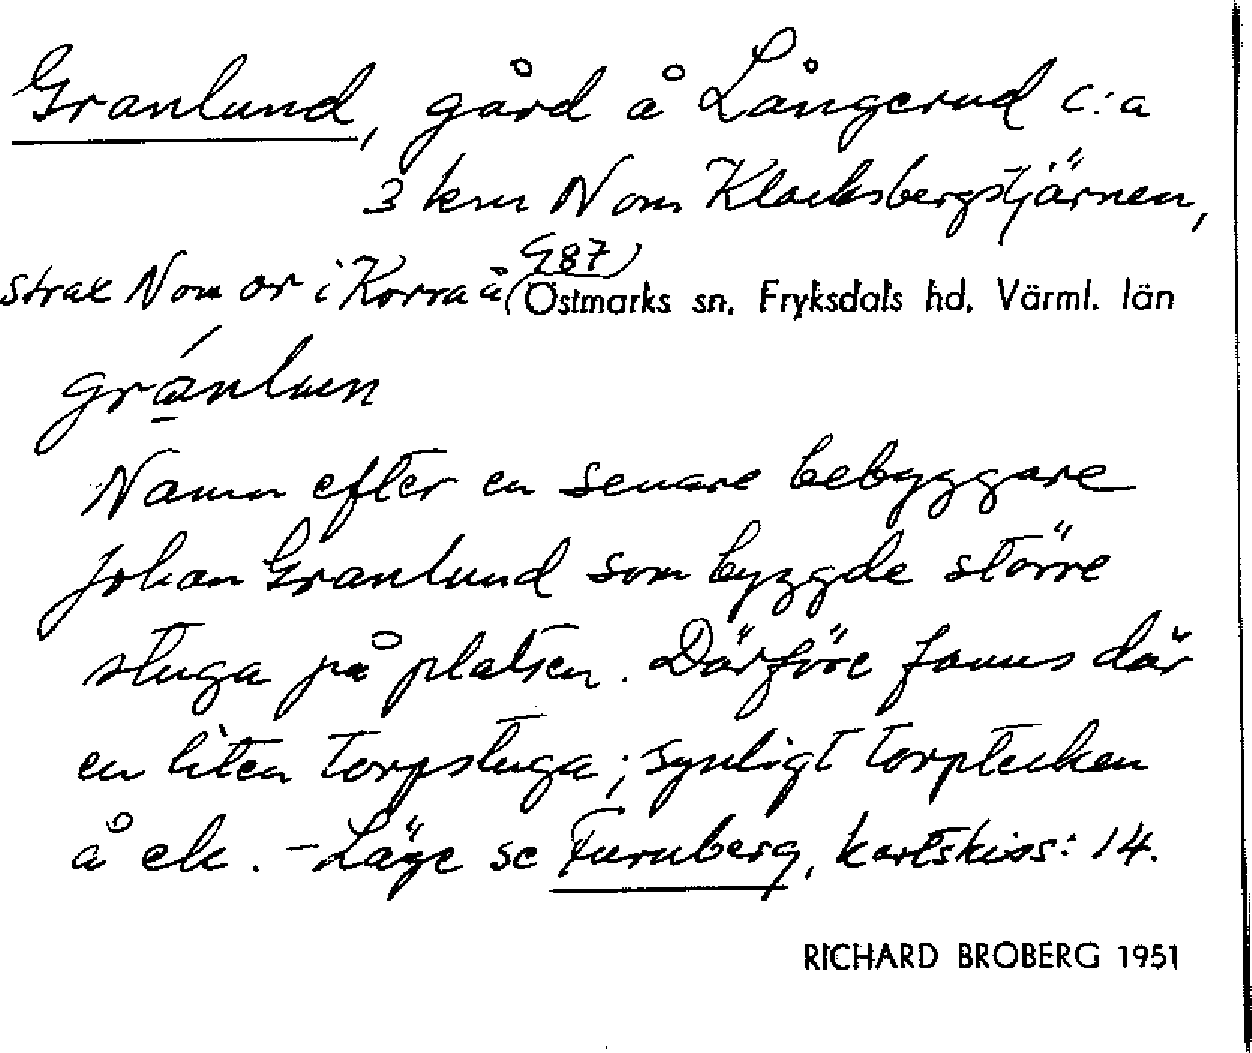 Granlund, gård å Långerud c:a
3 km N om Klocksbergstjärnen,
strax N om or i Korra å (G87)
Östmarks sn, Fryksdals hd, Värml. län
gránlun
Namn efter en senare bebyggare
Johan Granlund som byggde större
stuga på platsen. Därföre fanns där
en liten torpstuga; synligt torptecken
å ek. - Läge se Furuberg, kartskiss: 14.
RICHARD BROBERG 1951